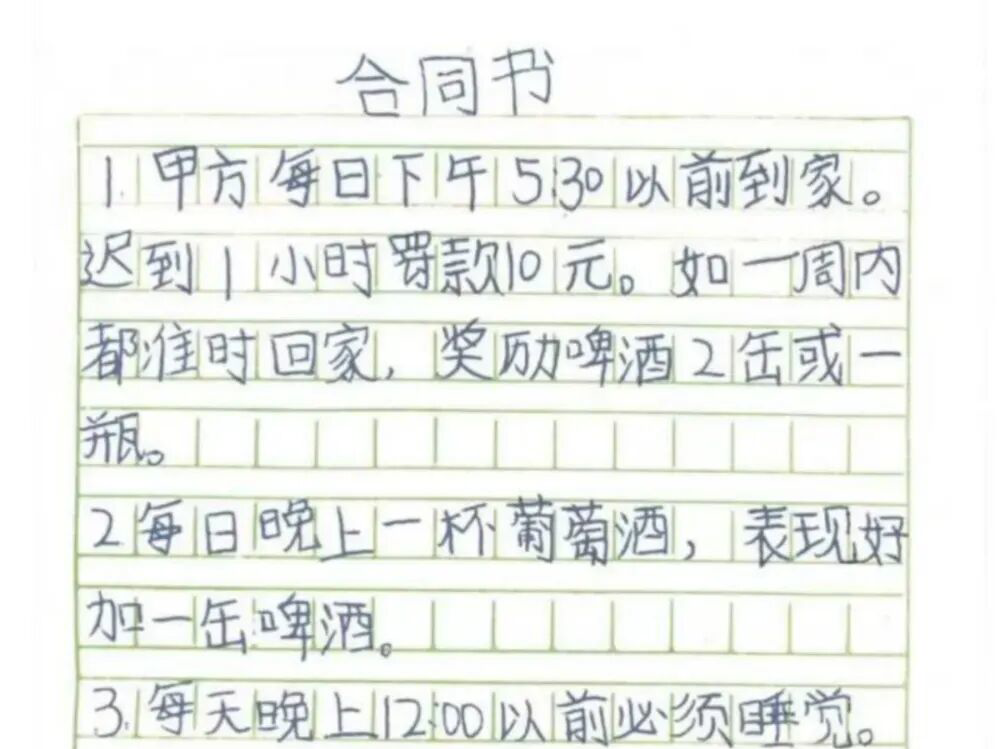 合同书
1.甲方每日下午5:30以前到家。
迟到1小时罚款10元。如一周内
都准时回家,奖励啤酒2缶或一
瓶。
2每日晚上一杯葡萄酒,表现好
加一缶啤酒。
3.每天晚上12:00以前必须睡觉。